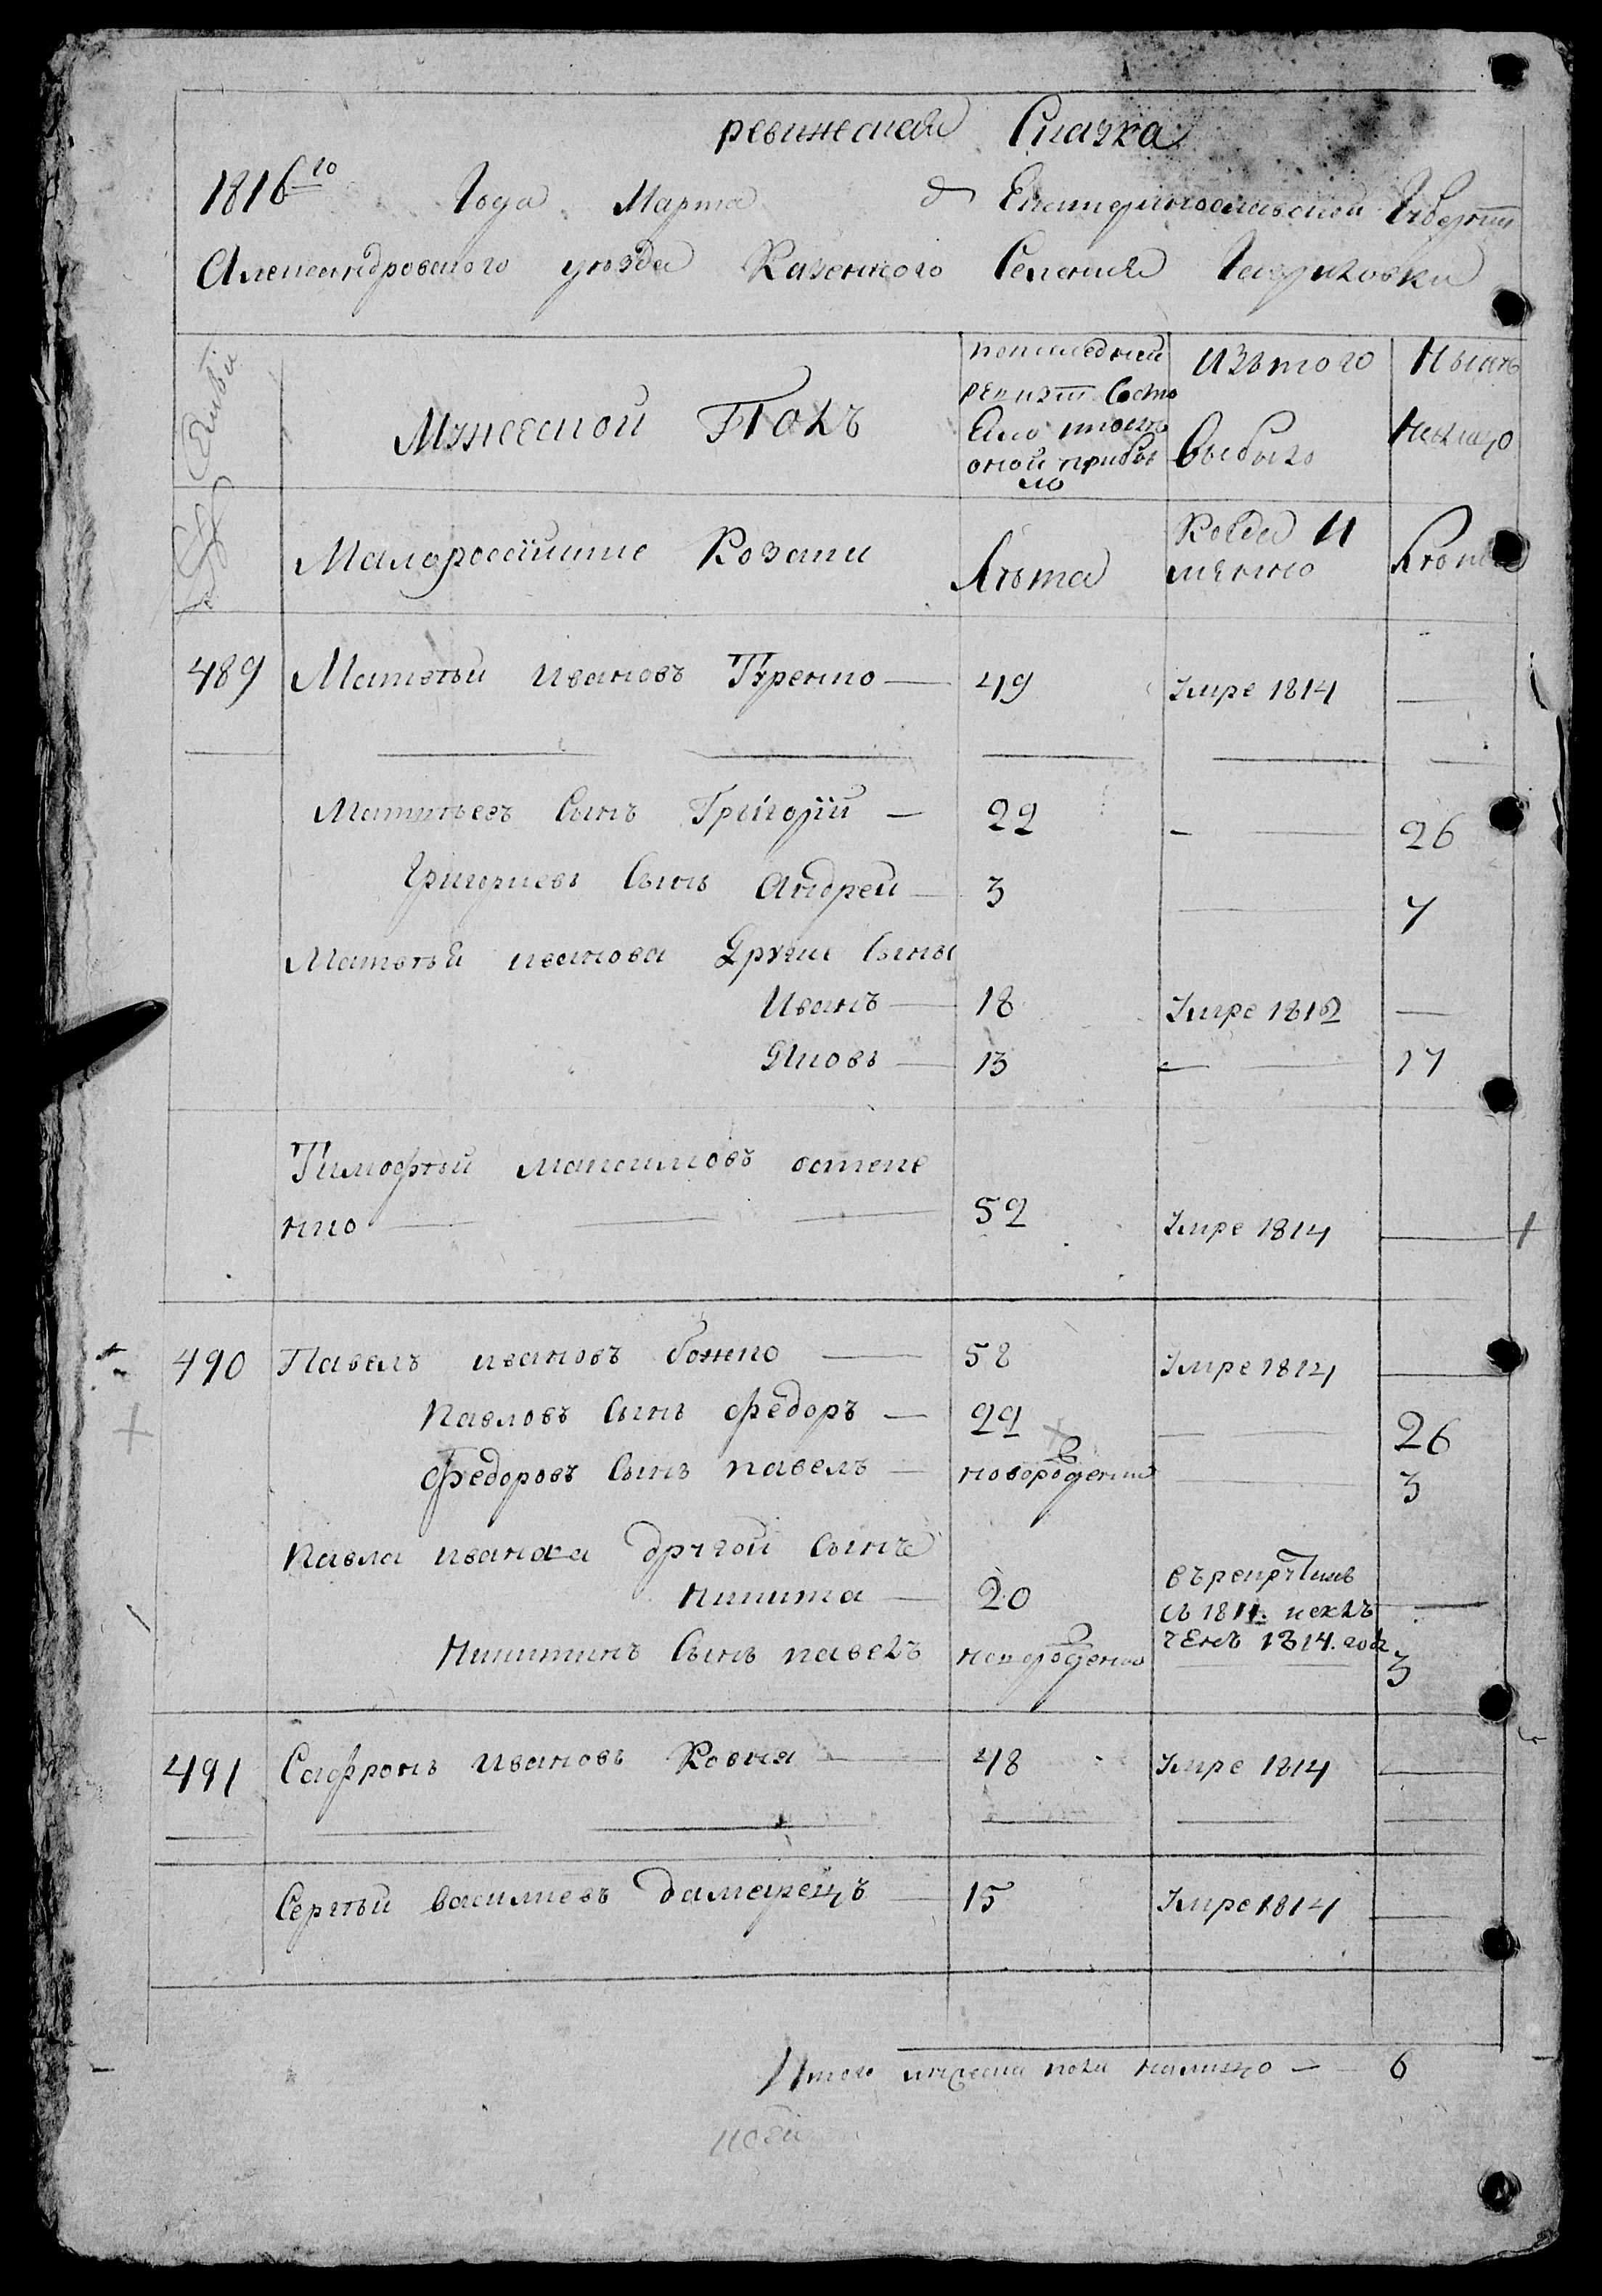 ревижская Сказка
1816го Года Марта д Екатеринославской Губернии
Александровского уезда Казенного Селения Гавриловки
Семьи
Мужеской Полъ
попоследней ревизіи Состояло ипослѣ оной прибыло
Изъ того выбыло
Нынѣ налицо
№
Малороссійские Козаки
Лѣта
Когда И менно
Лѣта
489 Матвѣй Ивановъ Туренко — 49 Умре 1814 —
Матвѣевъ Сынъ Григорій — 22 — 26
Григориевъ Сынъ Андрей — 3 — 7
Матвѣя иванова Другие Сыны
Иванъ — 18 Умре 1812 —
Яковъ — 13 — 17
Тимофѣй максимовъ остапе
нко — 52 Умре 1814 —
490 Павелъ ивановъ божко — 58 Умре 1814 —
Павловъ Сынъ федоръ — 22 — 26
федоровъ Сынъ павелъ — новорожденны — 3
Павла иванова другой сынъ
Никита — 20 въ рекруты въ 1811. исклъ —
ченъ 1814. года
Никитинъ Сынъ павелъ новорожденны — 3
491 Сафронъ Ивановъ Ковня — 48 Умре 1814 —
Сергѣй василиевъ дамарецъ — 15 Умре 1814 —
Итого мужеска пола налицо — 6